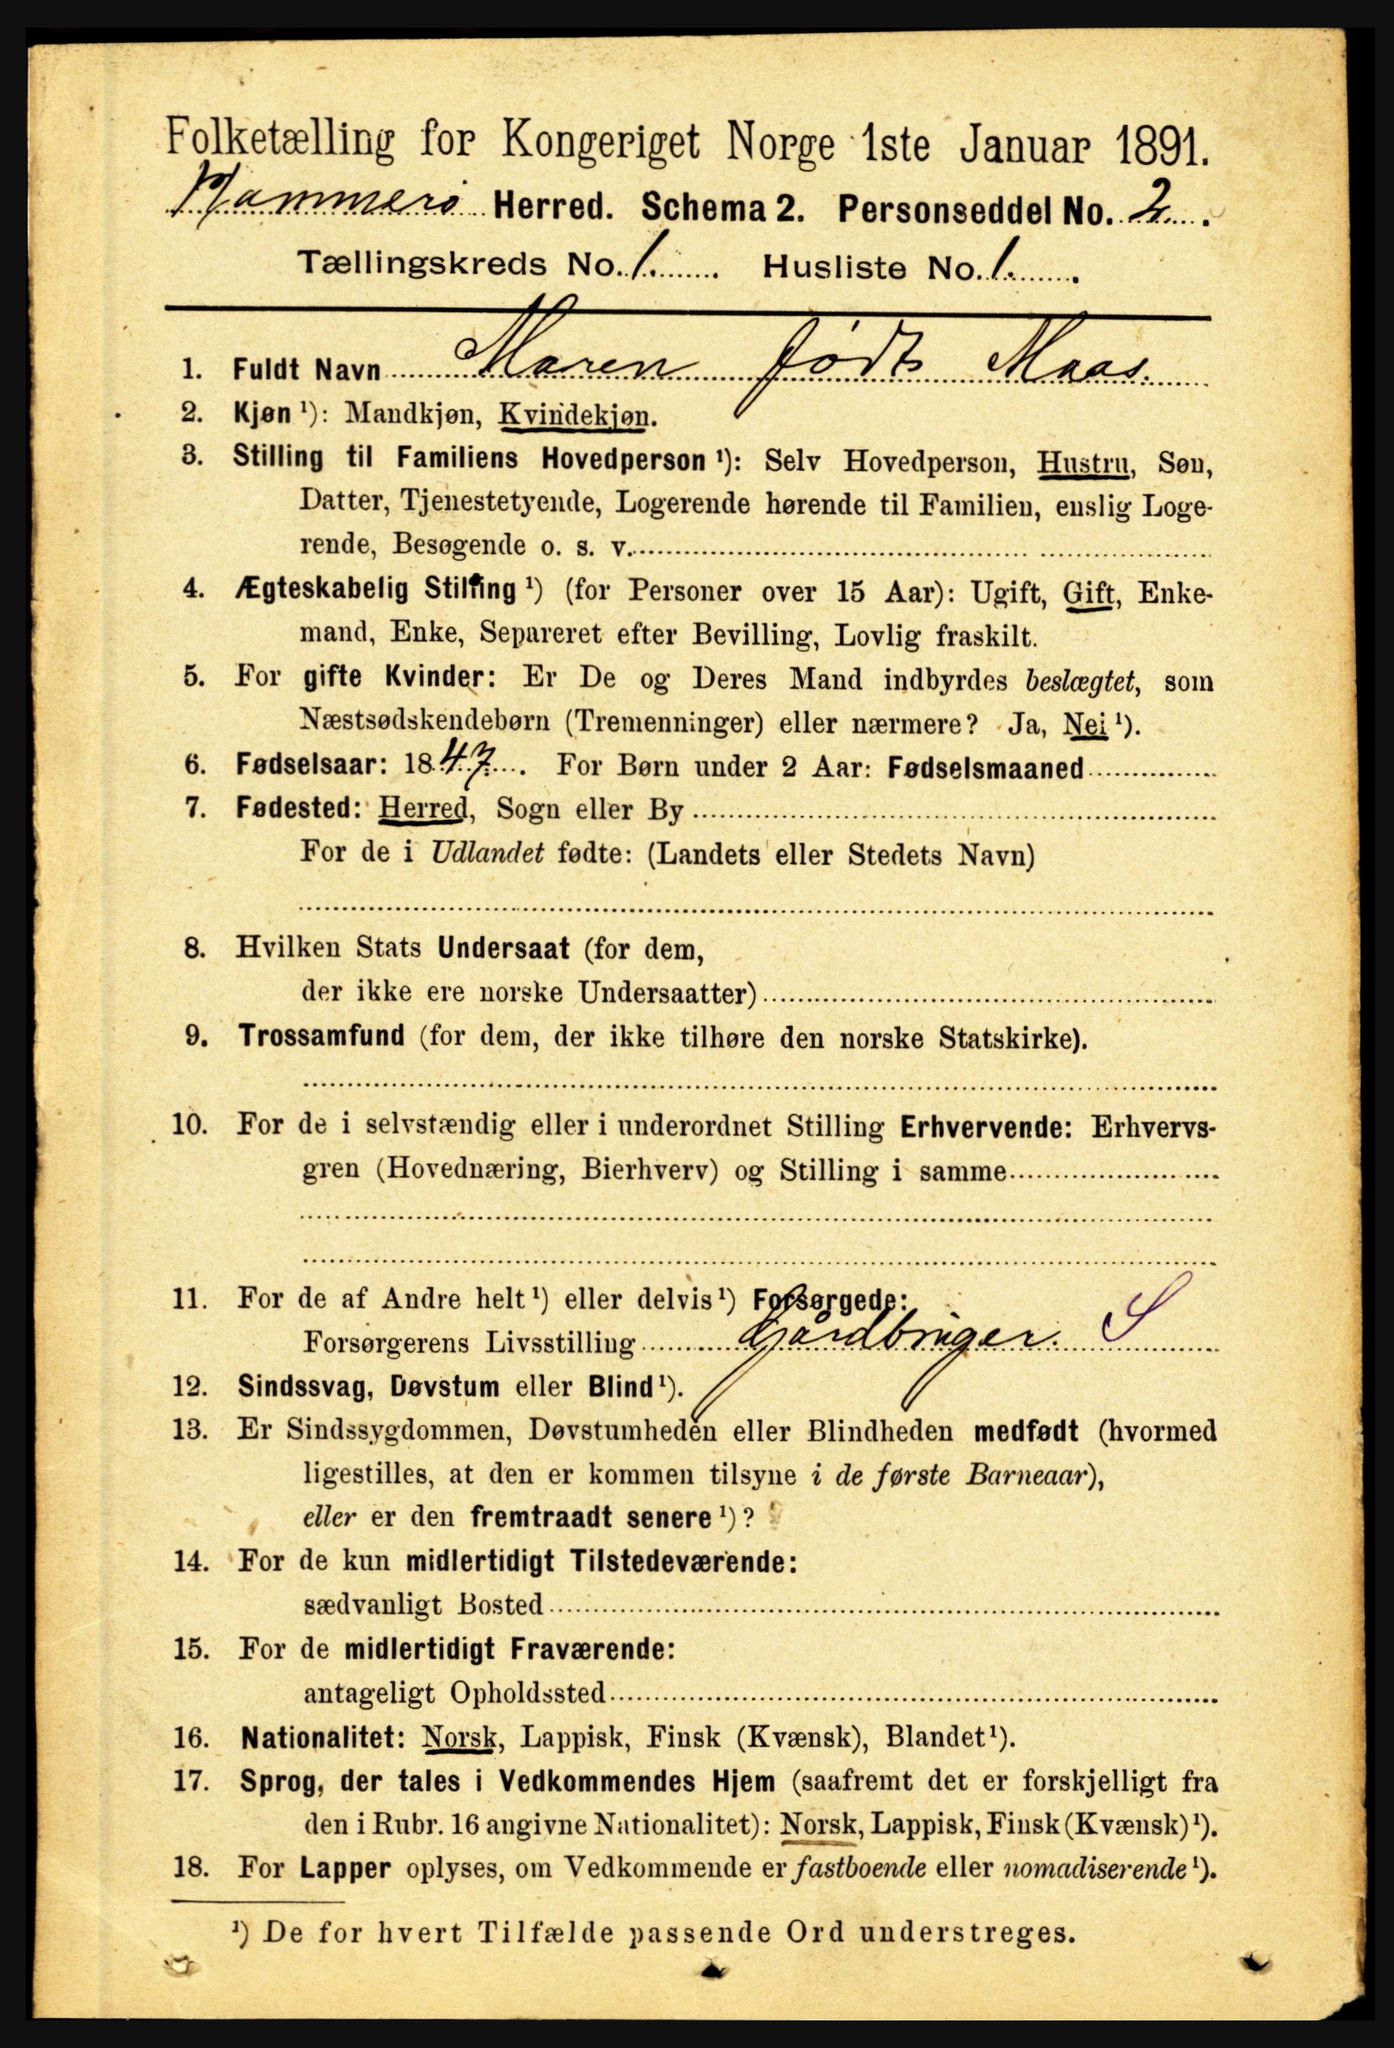 Folketælling for Kongeriget Norge 1ste Januar 1891.
Hammerø Herred. Schema 2. Personseddel No. 2.
Tællingskreds No. 1. Husliste No. 1.
1. Fuldt Navn Maren født Maas.
2. Kjøn ¹): Mandkjøn, Kvindekjøn.
3. Stilling til Familiens Hovedperson ¹): Selv Hovedperson, Hustru, Søn,
Datter, Tjenestetyende, Logerende hørende til Familien, enslig Loge-
rende, Besøgende o. s. v.
4. Ægteskabelig Stilling ¹) (for Personer over 15 Aar): Ugift, Gift, Enke-
mand, Enke, Separeret efter Bevilling, Lovlig fraskilt.
5. For gifte Kvinder: Er De og Deres Mand indbyrdes beslægtet, som
Næstsødskendebørn (Tremenninger) eller nærmere? Ja, Nei ¹).
6. Fødselsaar: 1847. For Børn under 2 Aar: Fødselsmaaned
7. Fødested: Herred, Sogn eller By
For de i Udlandet fødte: (Landets eller Stedets Navn)
8. Hvilken Stats Undersaat (for dem,
der ikke ere norske Undersaatter)
9. Trossamfund (for dem, der ikke tilhøre den norske Statskirke).
10. For de i selvstændig eller i underordnet Stilling Erhvervende: Erhvervs-
gren (Hovednæring, Bierhverv) og Stilling i samme
11. For de af Andre helt ¹) eller delvis ¹) Forsørgede:
Forsørgerens Livsstilling Gårdbruger. S
12. Sindssvag, Døvstum eller Blind ¹).
13. Er Sindssygdommen, Døvstumheden eller Blindheden medfødt (hvormed
ligestilles, at den er kommen tilsyne i de første Barneaar),
eller er den fremtraadt senere ¹)?
14. For de kun midlertidigt Tilstedeværende:
sædvanligt Bosted
15. For de midlertidigt Fraværende:
antageligt Opholdssted
16. Nationalitet: Norsk, Lappisk, Finsk (Kvænsk), Blandet ¹).
17. Sprog, der tales i Vedkommendes Hjem (saafremt det er forskjelligt fra
den i Rubr. 16 angivne Nationalitet): Norsk, Lappisk, Finsk (Kvænsk) ¹).
18. For Lapper oplyses, om Vedkommende er fastboende eller nomadiserende ¹).
¹) De for hvert Tilfælde passende Ord understreges.